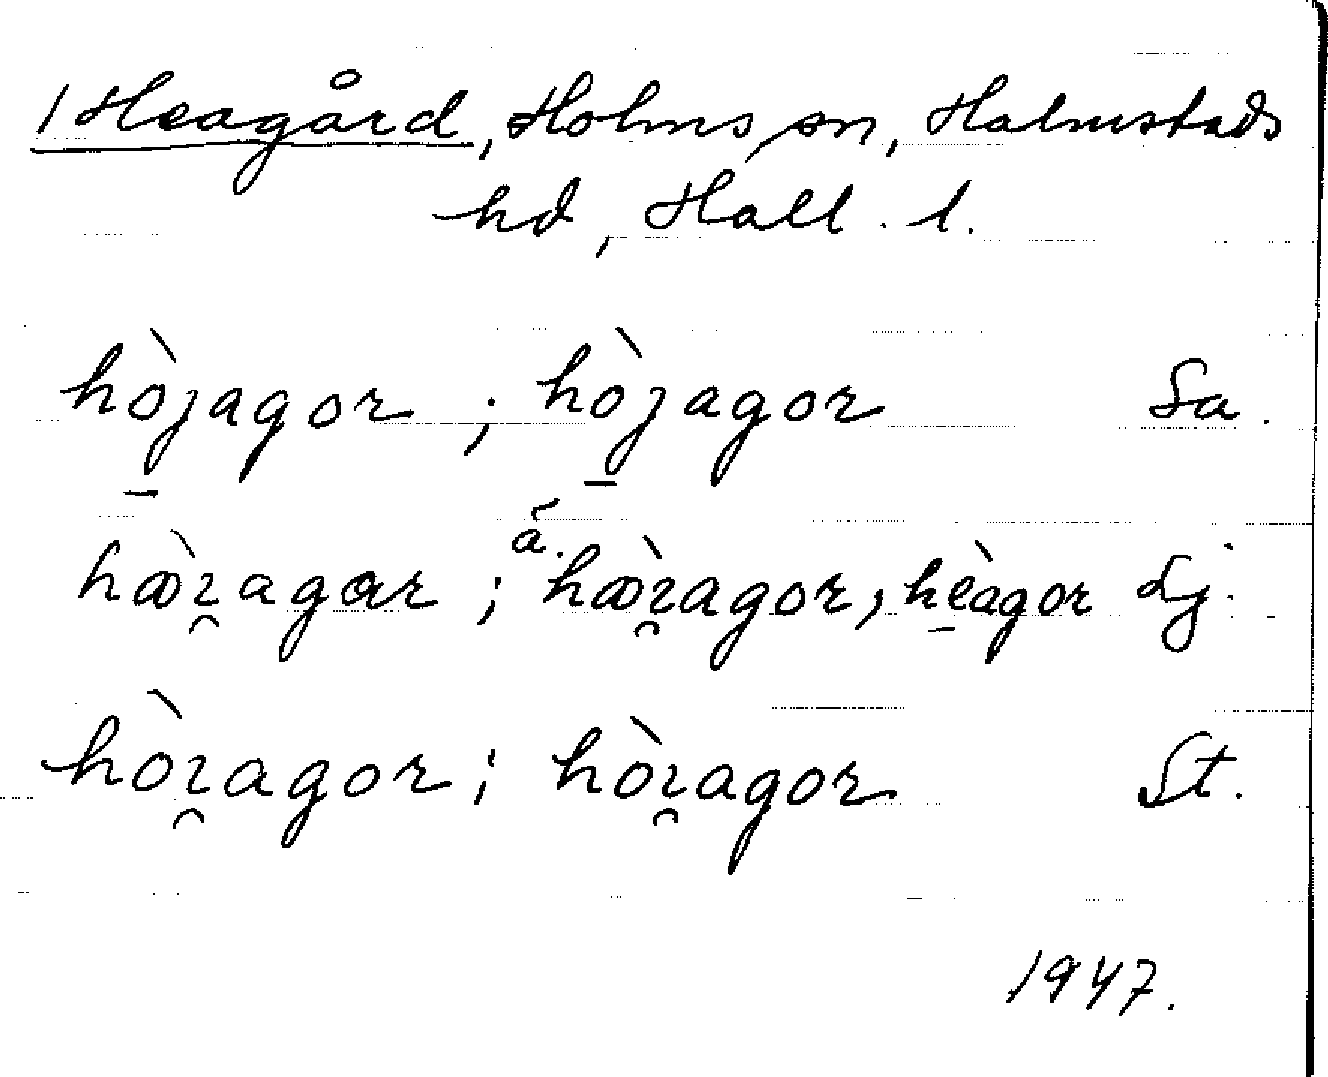 / Heagård, Holms sn, Halmstads
hd, Hall. l.
hòj̱agor ; hòj̱agor Sa.
hæ̀ɿ̯agar ; ä. hæ̀ɿ̯agor, hè̱agor Lj.
hòɿ̯agor ; hòɿ̯agor St.
1947.